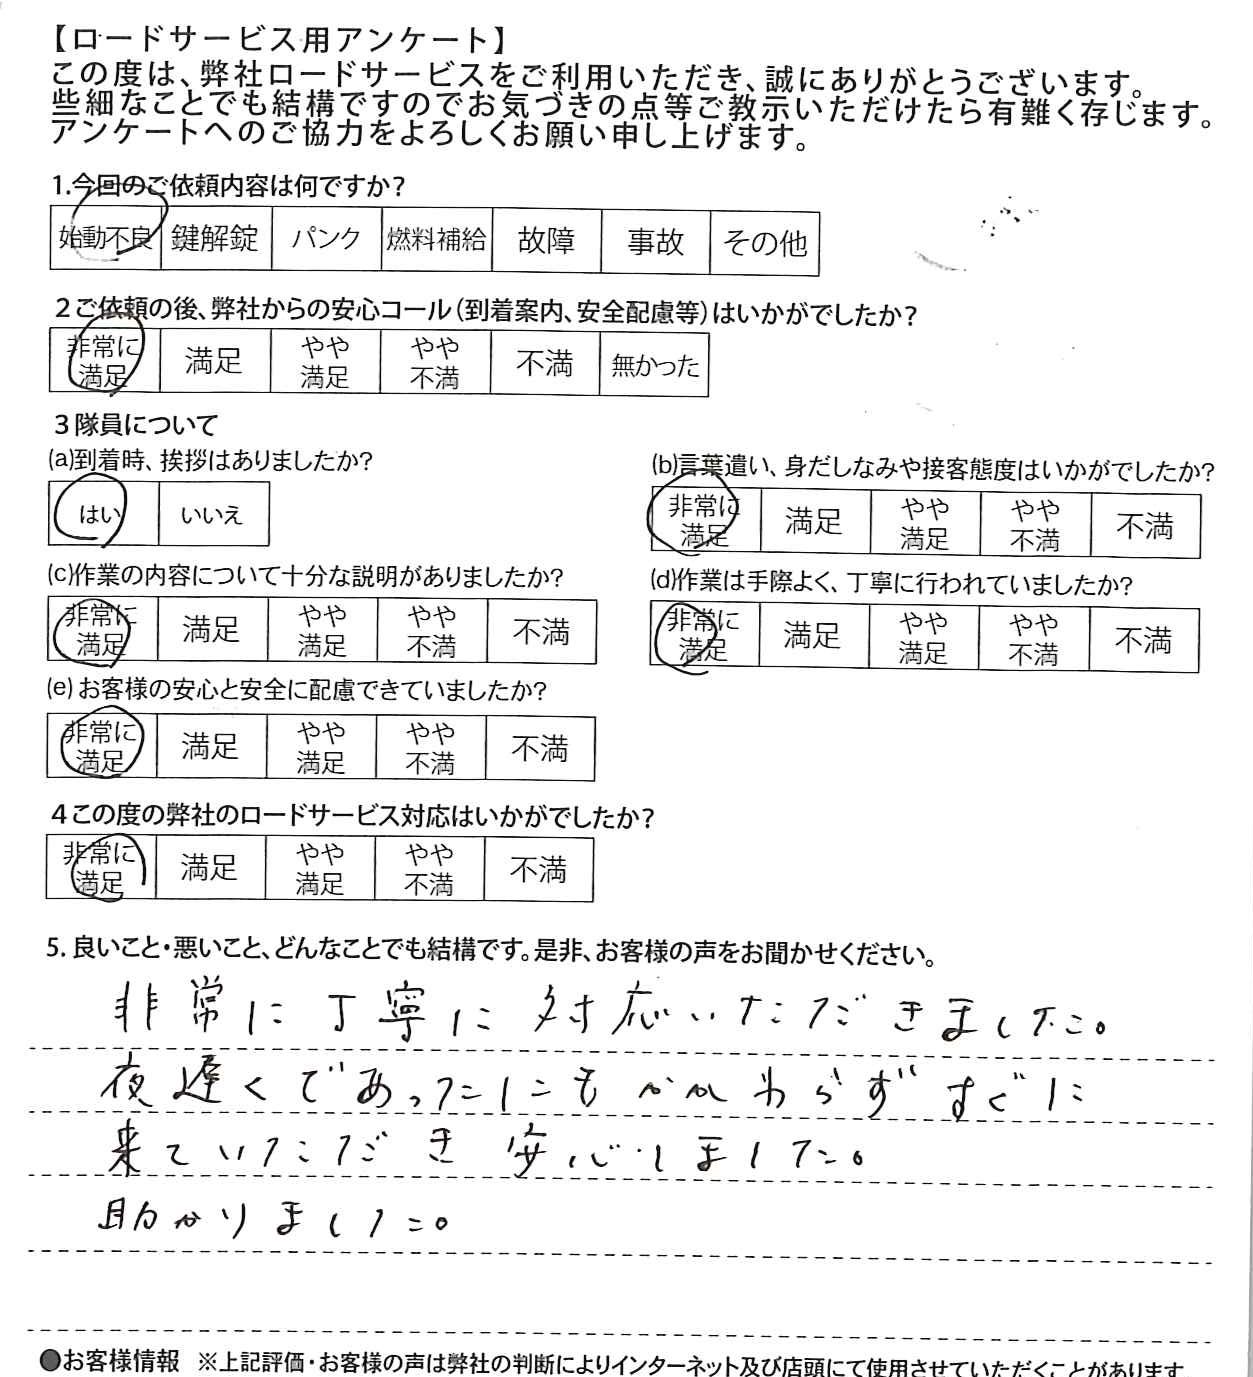 【ロードサービス用アンケート】
この度は、弊社ロードサービスをご利用いただき、誠にありがとうございます。
些細なことでも結構ですのでお気づきの点等ご教示いただけたら有難く存じます。
アンケートへのご協力をよろしくお願い申し上げます。
1.今回のご依頼内容は何ですか?
始動不良 鍵解錠 パンク 燃料補給 故障 事故 その他
2ご依頼の後、弊社からの安心コール(到着案内、安全配慮等)はいかがでしたか?
非常に満足 満足 やや満足 やや不満 不満 無かった
3隊員について
(a)到着時、挨拶はありましたか?
はい いいえ
(b)言葉遣い、身だしなみや接客態度はいかがでしたか?
非常に満足 満足 やや満足 やや不満 不満
(c)作業の内容について十分な説明がありましたか?
非常に満足 満足 やや満足 やや不満 不満
(d)作業は手際よく、丁寧に行われていましたか?
非常に満足 満足 やや満足 やや不満 不満
(e)お客様の安心と安全に配慮できていましたか?
非常に満足 満足 やや満足 やや不満 不満
4この度の弊社のロードサービス対応はいかがでしたか?
非常に満足 満足 やや満足 やや不満 不満
5.良いこと・悪いこと、どんなことでも結構です。是非、お客様の声をお聞かせください。
非常に丁寧に対応いただきました。
夜遅くであったにもかかわらずすぐに
来ていただき安心しました。
助かりました。
●お客様情報 ※上記評価・お客様の声は弊社の判断によりインターネット及び店頭にて使用させていただくことがあります。